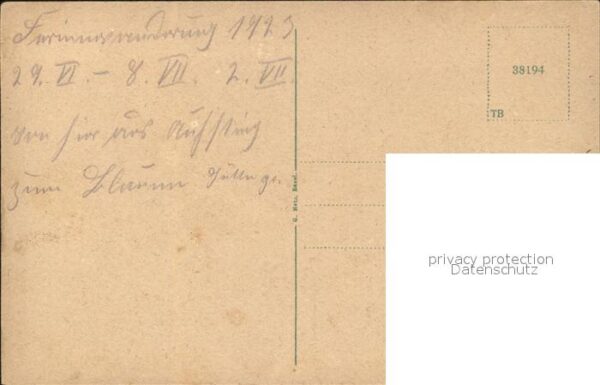 Ferienwanderung 1923
29. VI. – 8. VII. 2. VII.
von hier aus Aufstieg
zum Blauen
38194
TB
privacy protection
Datenschutz